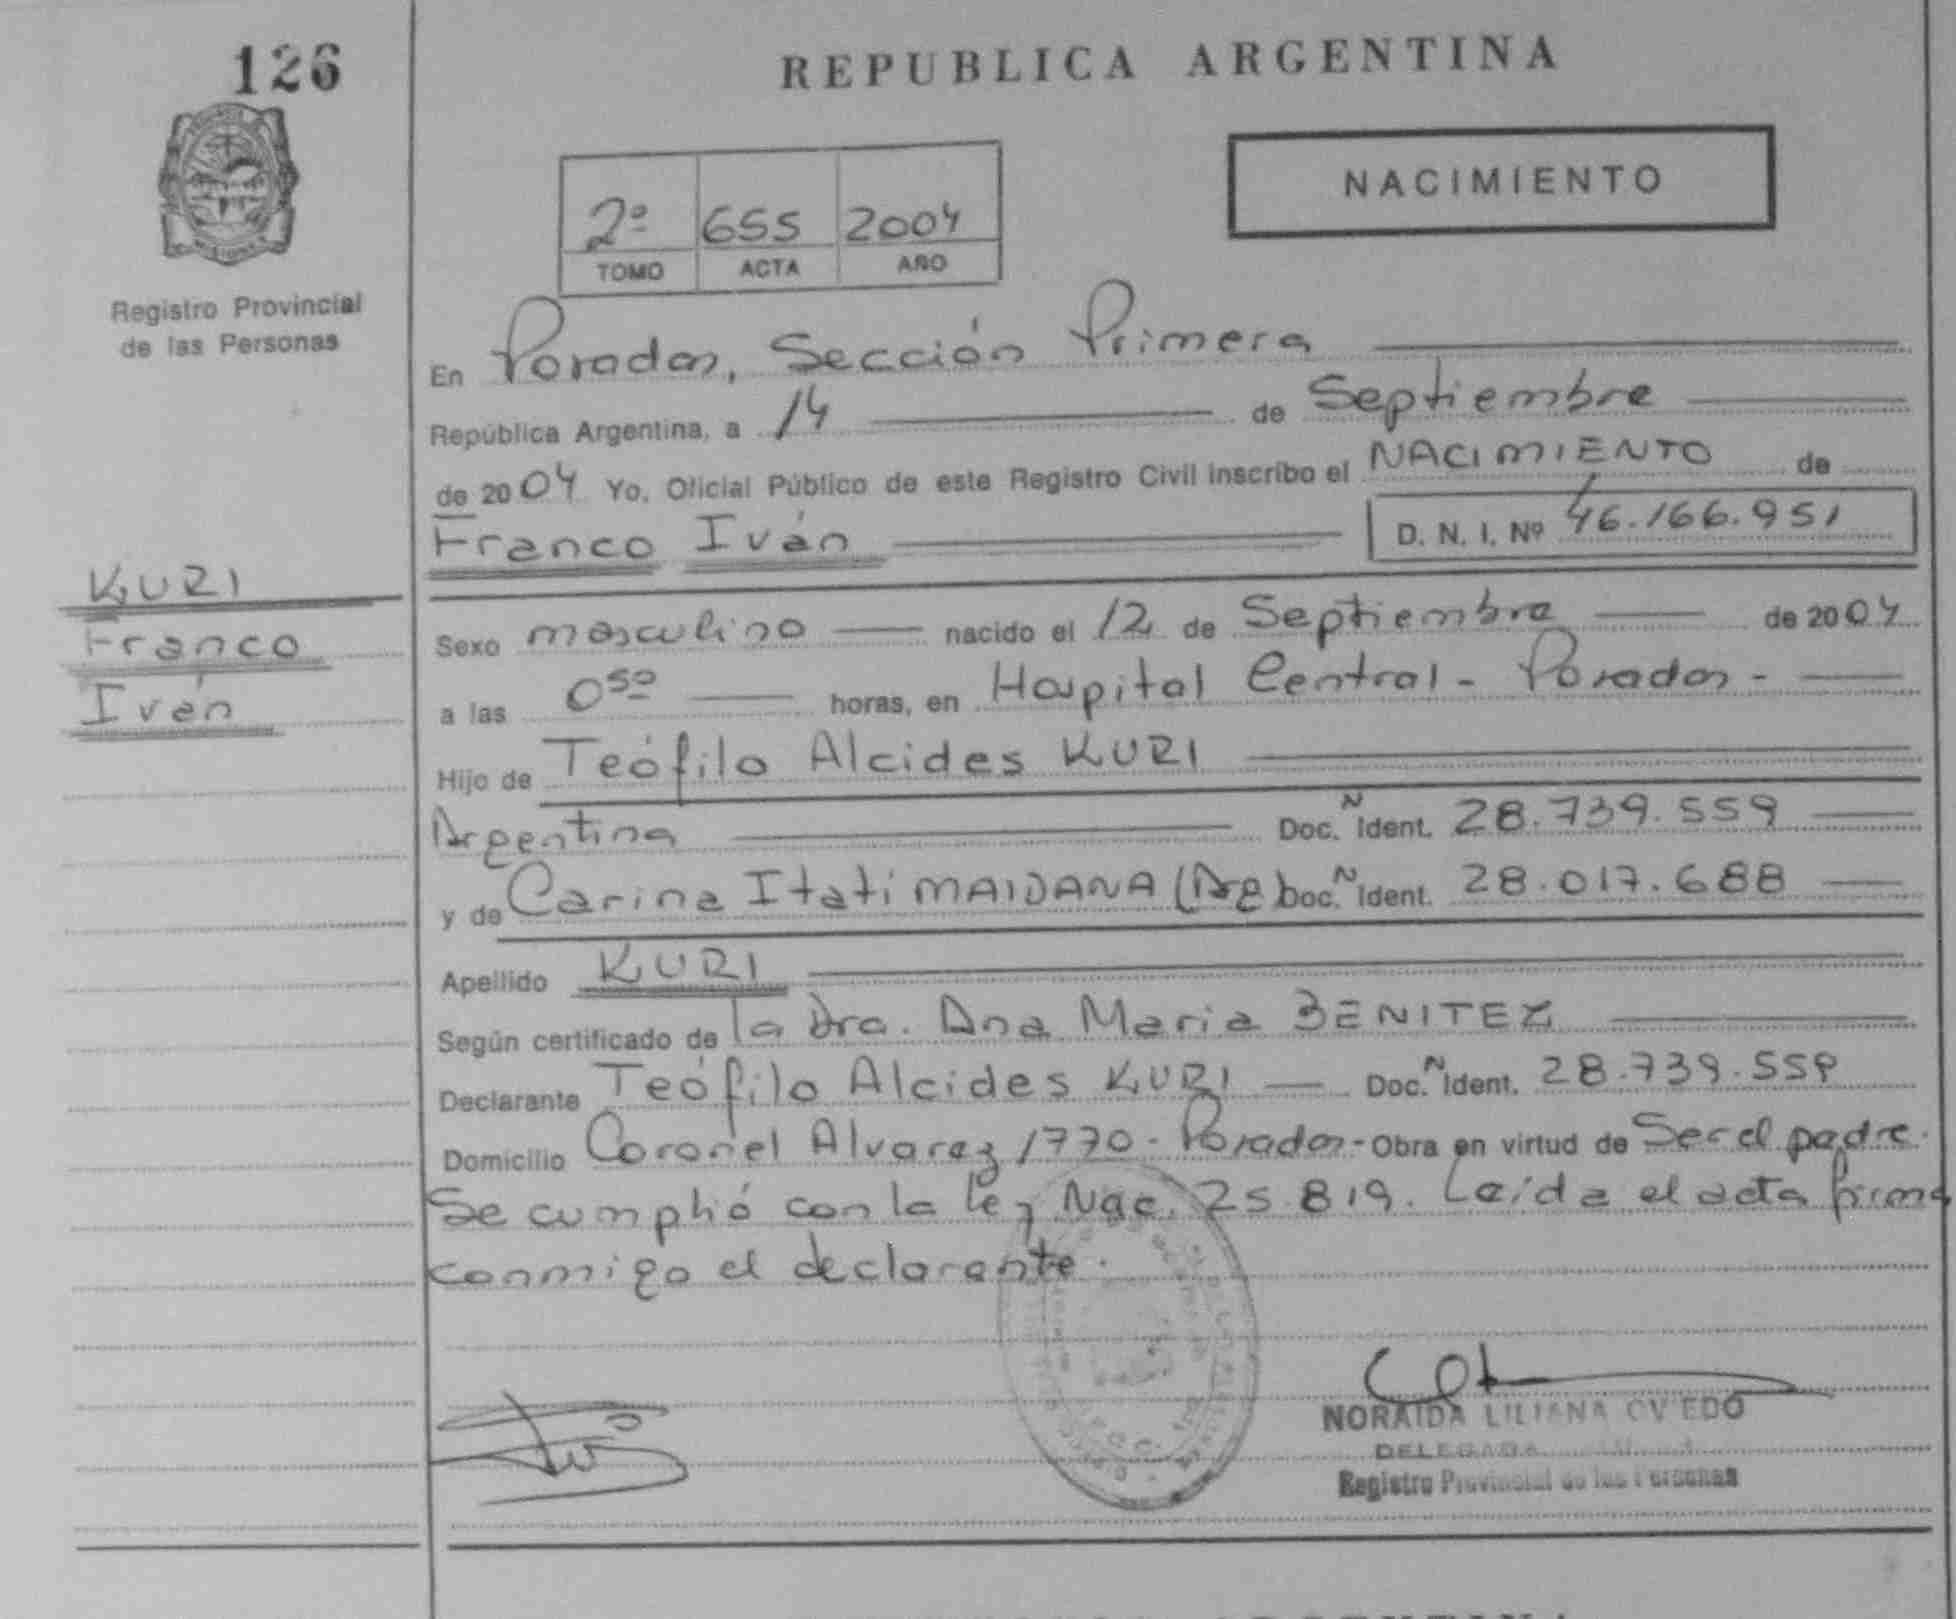 126
REPUBLICA ARGENTINA
NACIMIENTO
2º 655 2004
TOMO ACTA AÑO
Registro Provincial
de las Personas
En Posadas, Sección Primera
República Argentina, a 14 de Septiembre
de 2004 Yo, Oficial Público de este Registro Civil inscribo el NACIMIENTO de
Franco Iván D. N. I. Nº 46.166.951
KURI
Franco
Iván
Sexo masculino nacido el 12 de Septiembre de 2004
a las 0⁵⁰ horas, en Hospital Central - Posadas -
Hijo de Teófilo Alcides KURI
Argentina Doc. N Ident. 28.739.559
y de Carina Itatí MAIDANA (Arg) Doc. N Ident. 28.017.688
Apellido KURI
Según certificado de la Dra. Ana Maria BENITEZ
Declarante Teófilo Alcides KURI Doc. N Ident. 28.739.559
Domicilio Coronel Alvarez 1770 - Posadas - Obra en virtud de Ser el padre.
Se cumplió con la ley Nac. 25.819. Leída el acta firma
conmigo el declarante.
NORAIDA LILIANA OVIEDO
DELEGADA
Registro Provincial de las Personas